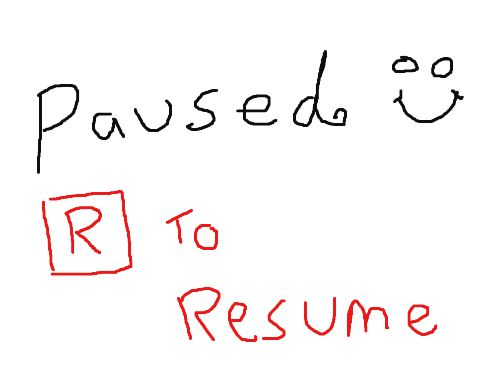 Paused
R To
Resume